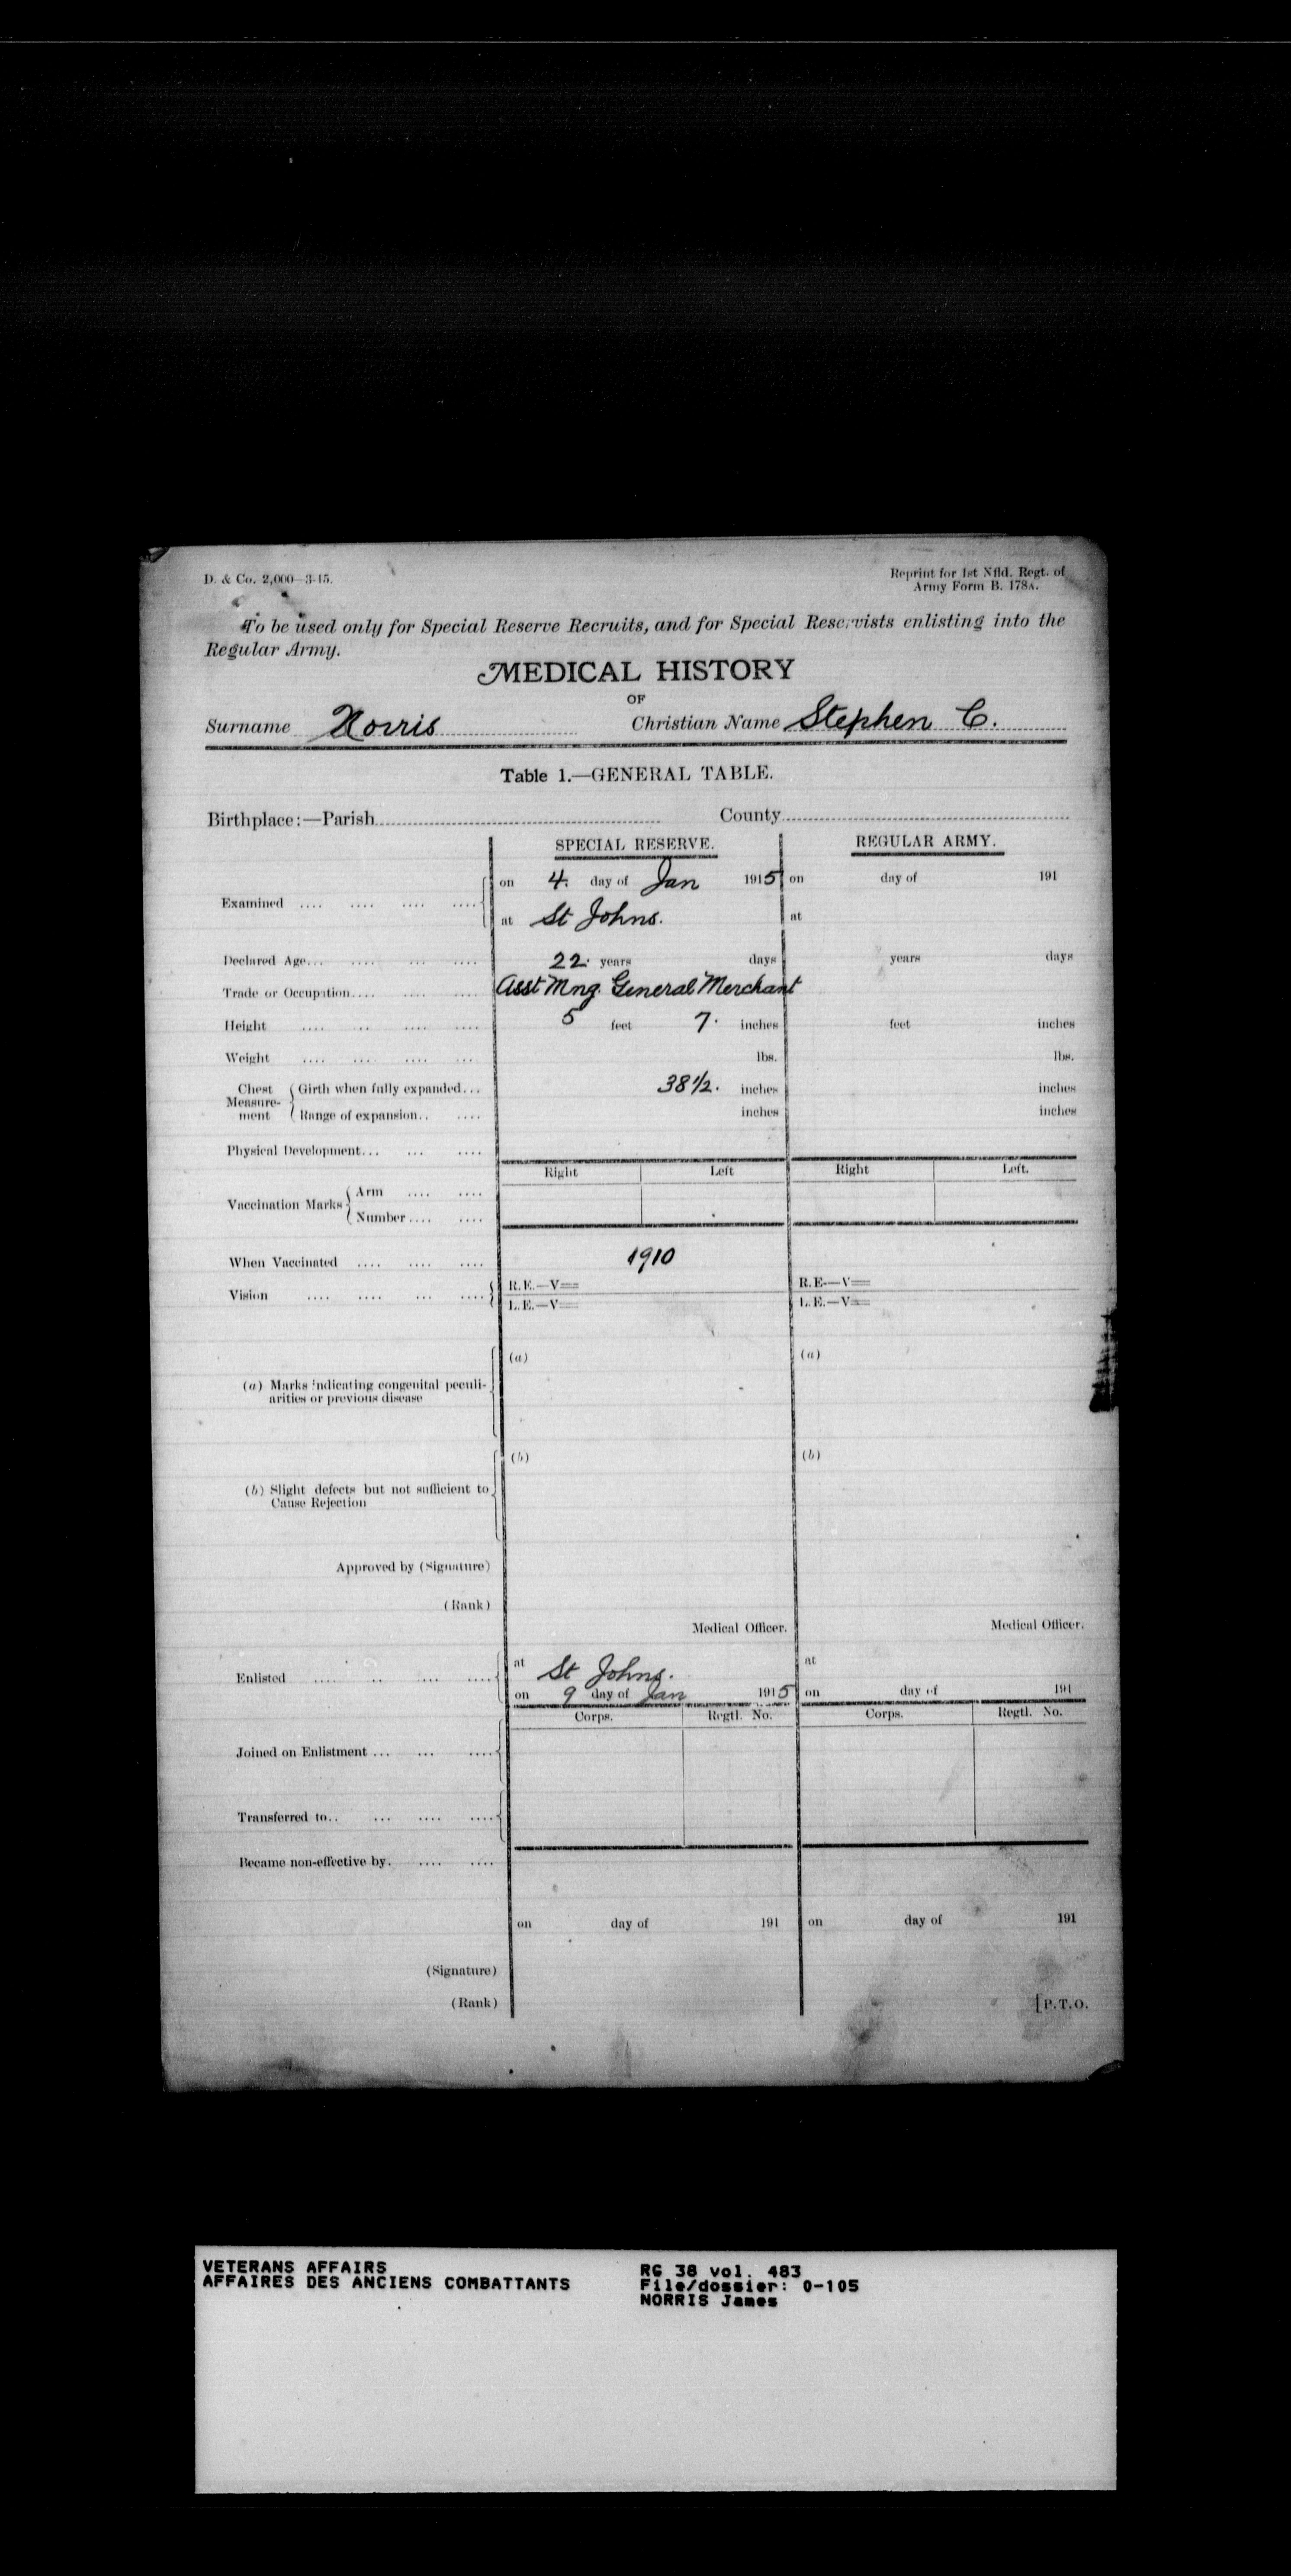 D. & Co. 2,000—3-15.
Reprint for 1st Nfld. Regt. of
Army Form B. 178A.
To be used only for Special Reserve Recruits, and for Special Reservists enlisting into the
Regular Army.
MEDICAL HISTORY
OF
Surname Norris Christian Name Stephen C.
Table 1.—GENERAL TABLE.
Birthplace:—Parish County
SPECIAL RESERVE. REGULAR ARMY.
on 4. day of Jan 1915 on day of 191
Examined .... .... .... ....
at St Johns. at
Declared Age... .... ... .... 22. years days years days
Trade or Occupation.... .... .... Asst Mng. General Merchant
Height .... .. .... .... 5 feet 7. inches feet inches
Weight .... .... .... ... lbs. lbs.
Chest Measurement Girth when fully expanded... 38 1/2. inches inches
Range of expansion.. .... inches inches
Physical Development... ... ....
Right Left Right Left.
Vaccination Marks Arm .... ....
Number.... ....
When Vaccinated .... .... .... 1910
Vision .... .... ... .... R.E.—V= R.E.—V=
L.E.—V= L.E.—V=
(a) (a)
(a) Marks indicating congenital peculi-
arities or previous disease
(b) (b)
(b) Slight defects but not sufficient to
Cause Rejection
Approved by (Signature)
(Rank)
Medical Officer. Medical Officer.
at St Johns. at
Enlisted .... .. .... ....
on 9 day of Jan 1915 on day of 191
Corps. Regtl. No. Corps. Regtl. No.
Joined on Enlistment ... ... ....
Transferred to.. ... .... ....
Became non-effective by. .... ....
on day of 191 on day of 191
(Signature)
(Rank)
[P.T.O.
VETERANS AFFAIRS RG 38 vol. 483
AFFAIRES DES ANCIENS COMBATTANTS File/dossier: 0-105
NORRIS James